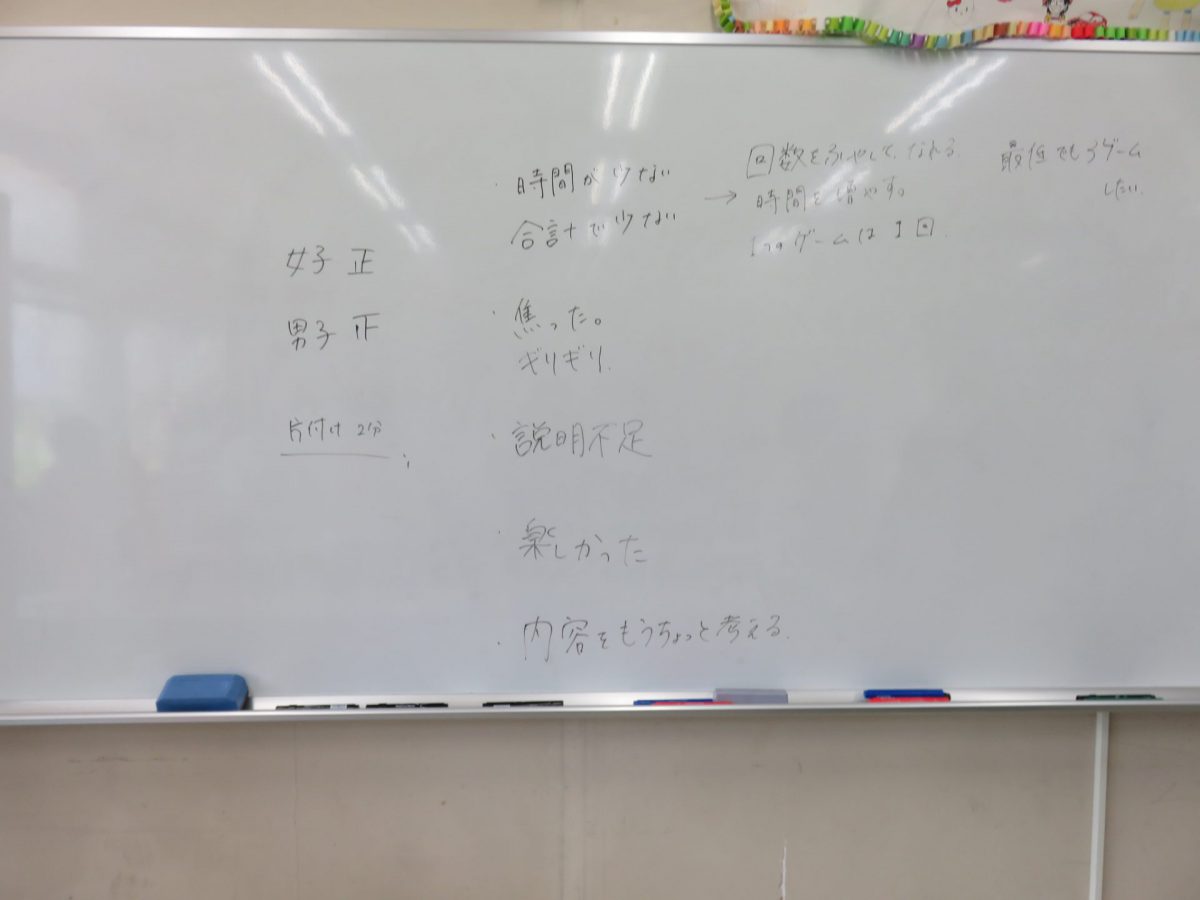 女子 正
男子 正
片付け 2分
・時間が少ない
合計で少ない
→ 回数をふやして、なれる。
時間を増やす。
1つのゲームは1回.
最低でも3ゲーム
したい.
・焦った。
ギリギリ.
・説明不足
・楽しかった
・内容をもうちょっと考える.